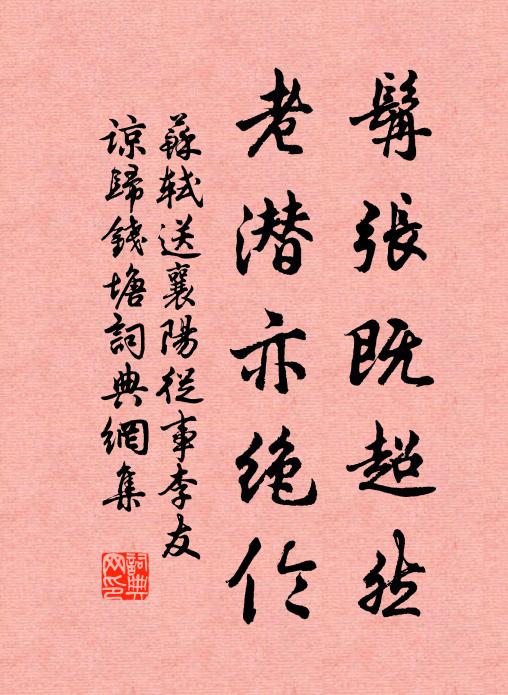 髯張既超然
老潛亦绝伦
蘇轼送襄陽從事李友
諒歸錢塘詞典網集
詞典网印